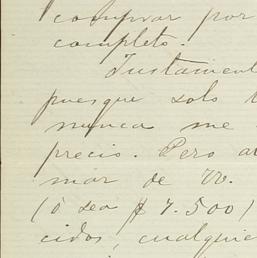 comprar por
completo.
Justament
puesque solo
nunca me
precio. Pero a
mar de VV.
(ó sea $ 7.500)
cidos, cualquie